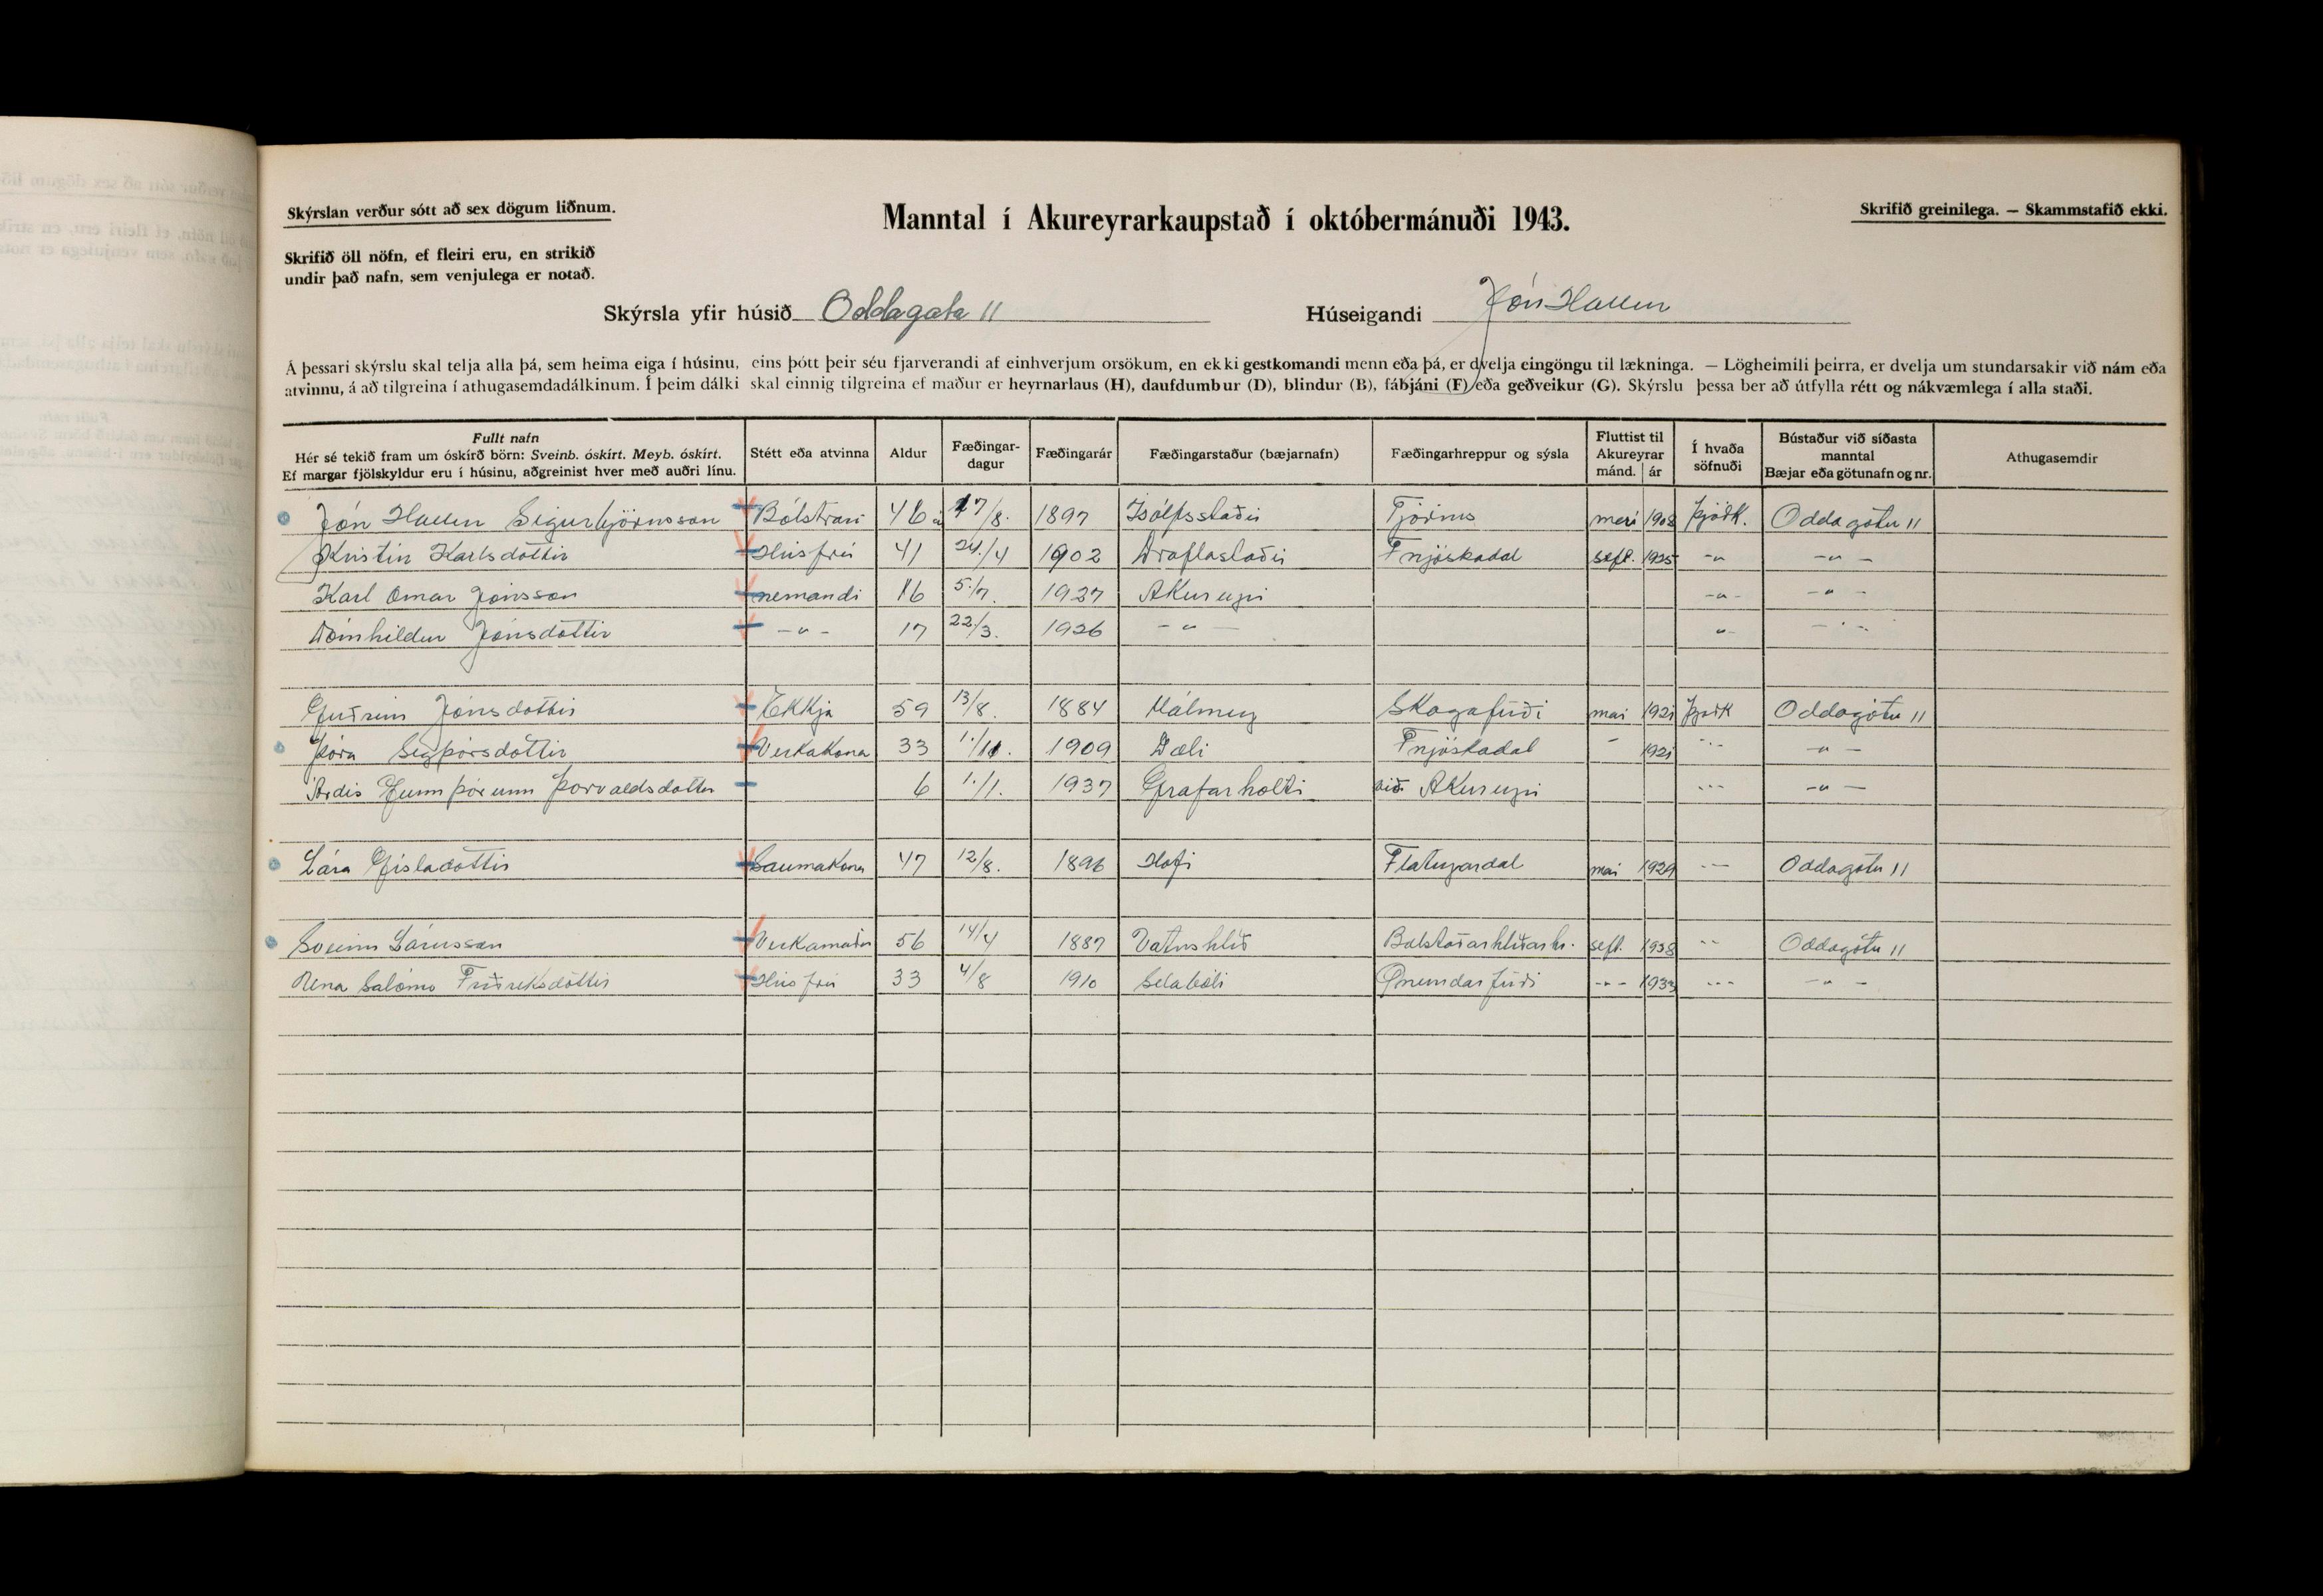 Skýrslan verður sótt að sex dögum liðnum.
Manntal í Akureyrarkaupstað í októbermánuði 1943.
Skrifið greinilega. — Skammstafið ekki.
Skrifið öll nöfn, ef fleiri eru, en strikið
undir það nafn, sem venjulega er notað.
Skýrsla yfir húsið Oddagata 11 Húseigandi Jón Hallur
Á þessari skýrslu skal telja alla þá, sem heima eiga í húsinu, eins þótt þeir séu fjarverandi af einhverjum orsökum, en ekki gestkomandi menn eða þá, er dvelja eingöngu til lækninga. — Lögheimili þeirra, er dvelja um stundarsakir við nám eða
atvinnu, á að tilgreina í athugasemdadálkinum. Í þeim dálki skal einnig tilgreina ef maður er heyrnarlaus (H), daufdumbur (D), blindur (B), fábjáni (F) eða geðveikur (G). Skýrslu þessa ber að útfylla rétt og nákvæmlega í alla staði.
Fullt nafn
Hér sé tekið fram um óskírð börn: Sveinb. óskírt. Meyb. óskírt.
Ef margar fjölskyldur eru í húsinu, aðgreinist hver með auðri línu.
Stétt eða atvinna
Aldur
Fæðingar-
dagur
Fæðingarár
Fæðingarstaður (bæjarnafn)
Fæðingarhreppur og sýsla
Fluttist til
Akureyrar
mánd. ár
Í hvaða
söfnuði
Bústaður við síðasta
manntal
Bæjar eða götunafn og nr.
Athugasemdir
Jón Hallur Sigurbjörnsson Bólstrari 46 17/8. 1897 Ísólfsstaðir Tjörnes 1908 Þjóðk. Oddagötu 11
Kristín Karlsdóttir Húsfrú 41 24/4 1902 Draflastaðir Fnjóskadal sept. 1925 -"- -"-
Karl Ómar Jónsson nemandi 16 5/7. 1927 Akureyri -"- -"-
Dómhildur Jónsdóttir -"- 17 22/3. 1926 -"- " -"-
Guðrún Jónsdóttir Ekkja 59 13/8. 1884 Málmey Skagafirði maí 1921 Þjóðk Oddagötu 11
Þóra Sigþórsdóttir Verkakona 33 1909 Dæli Fnjóskadal - 1921 -"- -"-
Gunnþórunn Þorvaldsdóttir 6 1/1. 1937 Grafarholti við Akureyri -"- -"-
Lára Gísladóttir Saumakona 47 12/8. 1896 Hofi Flateyjardal maí 1929 -"- Oddagötu 11
Sveinn Lárusson Verkamaður 56 14/4 1887 Vatnshlíð Bólstaðarhlíðarhr. sept. 1938 -"- Oddagötu 11
Salóme Friðreksdóttir Húsfrú 33 4/8 1910 Selabóli Önundarfirði -"- 1933 -"- -"-